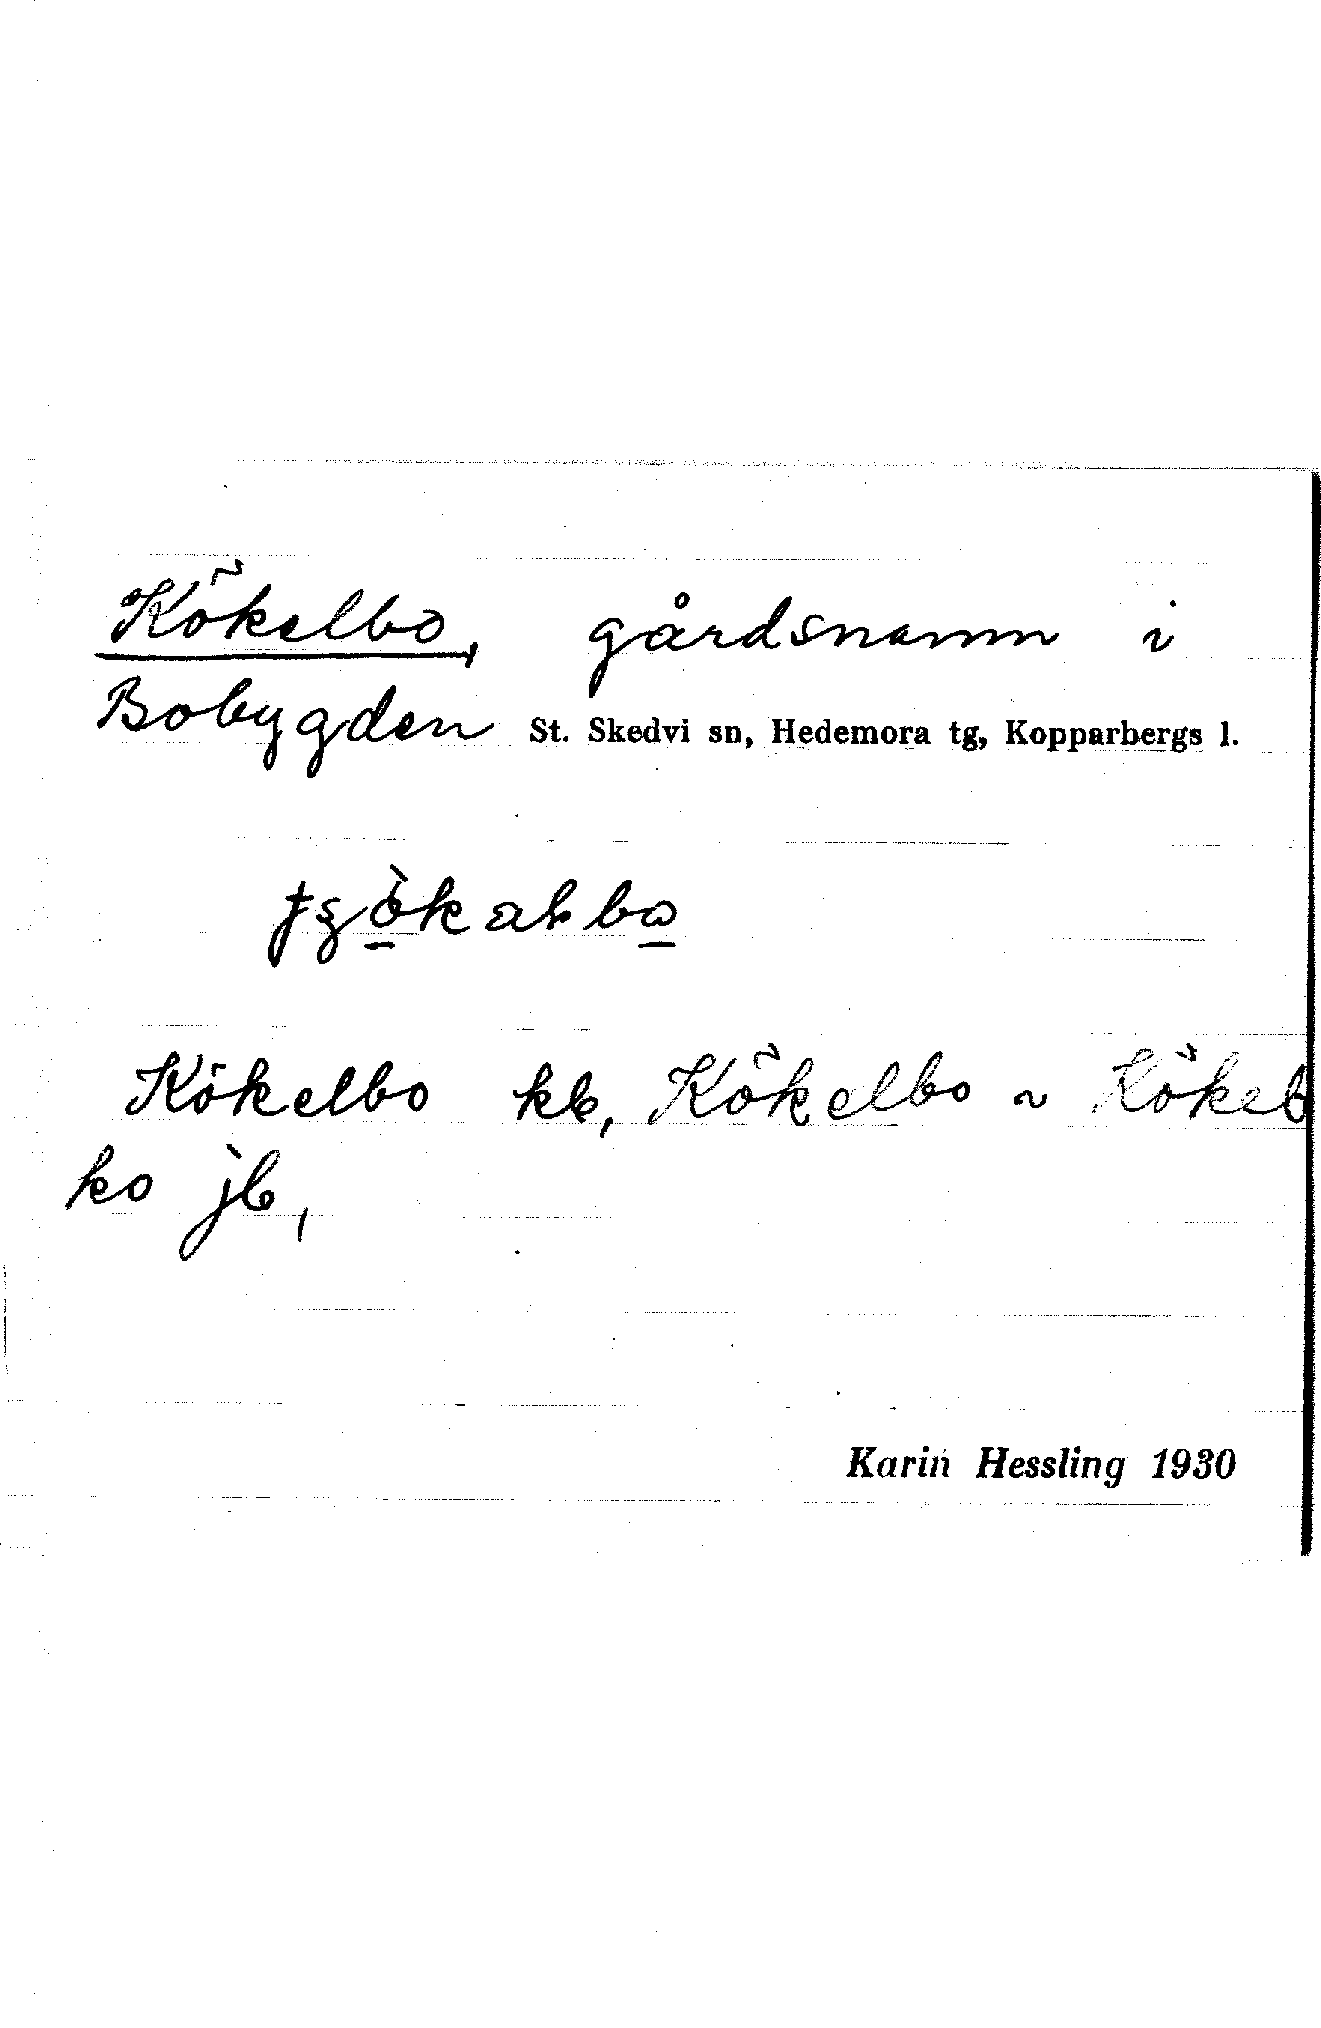 Kökelbo, gårdsnamn i
Bobygden St. Skedvi sn, Hedemora tg, Kopparbergs l.
Kökelbo kb, Kökelbo ~ Kökel
bo jb,
Karin Hessling 1930